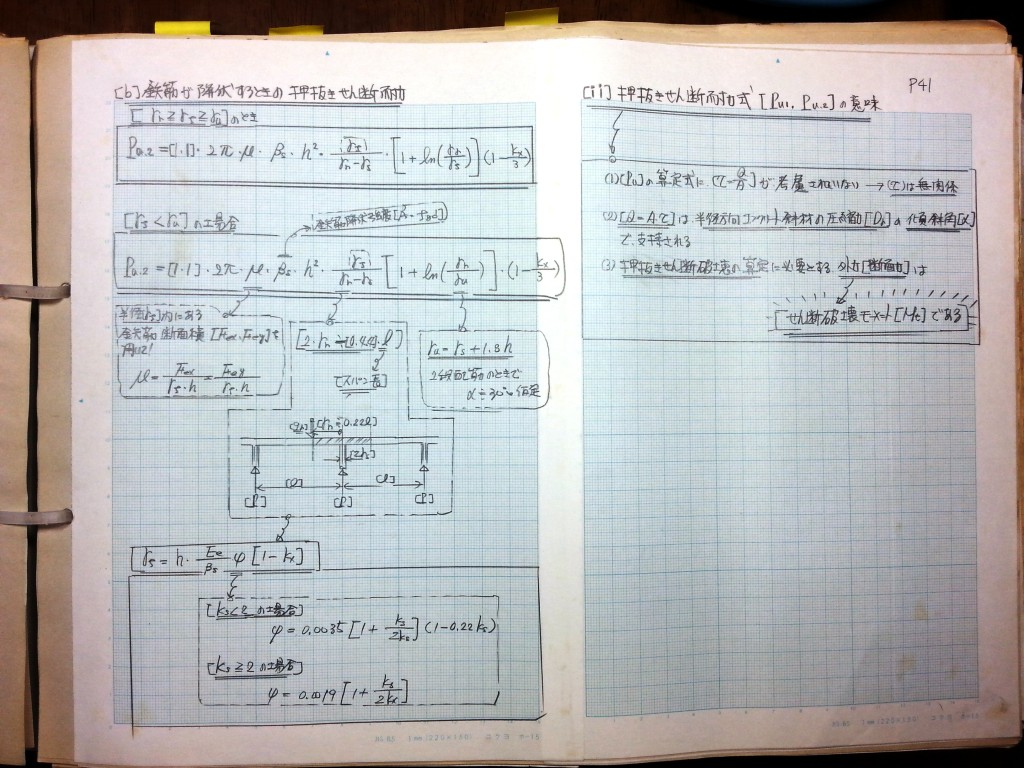 [b] 鉄筋が降伏するときの押抜きせん断耐力
[rn ≧ rs ≧ ru]のとき
Pu.2 = [1.1]・2π・μ・βs・h²・[rs]/(rn-rs)・[1+ln(rn/rs)](1-kx/3)
[rs < ru]の場合
鉄筋降伏強度
Pu.2 = [1.1]・2π・μ・βs・h²・[rs]/(rn-rs)[1+ln(rn/ru)]・(1-kx/3)
内にある
鉄筋断面積[Fex, Fey]を
用いて!
μ = Fex/(rs・h) = Fey/(rs・h)
[2・rn ≒ 0.44・l]
[スパン長]
ru = rs + 1.3h
2段配筋のときで
α≒30°仮定
[rn=0.22l]
[l]
[l]
[P]
[P]
[P]
rs = h・Ee/βs φ[1-kx]
[ks<2の場合]
φ = 0.0035[1+ks/2kx](1-0.22ks)
[ks≧2の場合]
φ = 0.0019[1+ks/2kx]
P41
[ii] 押抜きせん断耐力式[Pu1, Pu.2]の意味
(1) [Pu]の算定式に、[τ=Q/A]が考慮されていない → [τ]は無関係
(2) [Q=A・τ]は半径方向コンクリート斜材の圧縮力[Db]の傾斜角[α]
で、支持される
(3) 押抜きせん断破壊の算定に必要とする、外力[断面力]は
[せん断破壊モーメント[Mc]]である